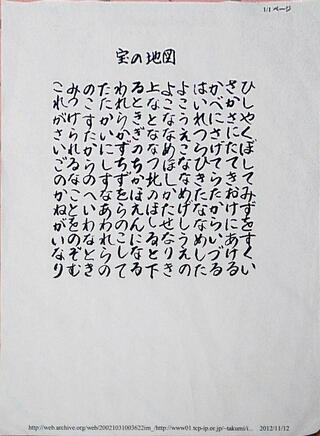 1/1 ページ
宝の地図
ひしやくぼしてみずをすくい
さかさにたてきおけにあける
かべにさげてらたからいづる
はいれつらひきたななめした
よこうえこななめげしうえの
よこななめぼしかたせなりき
上なとななつ北のはしると下
るときぎのちかほえんになる
われらかずちずをらのこして
たたかいにしすなあわれらの
のこすたからのへいわなとき
みつけられるなことをのぞむ
これがさいごのかねがいなり
http://web.archive.org/web/20021031003622im_/http://www01.tcp-ip.or.jp/~takumi/i... 2012/11/12